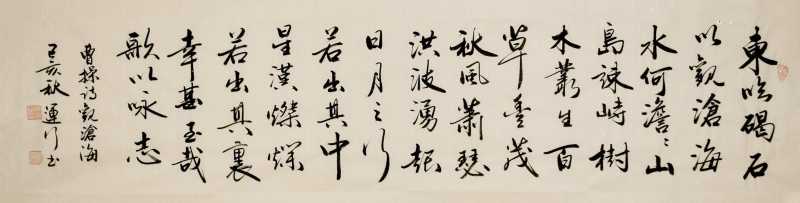 東臨碣石
以觀滄海
水何澹〻山
島竦峙樹
木叢生百
草豐茂
秋風蕭瑟
洪波湧起
日月之行
若出其中
星漢燦爛
若出其裏
幸甚至哉
歌以咏志
曹操詩觀滄海
己亥秋運行书